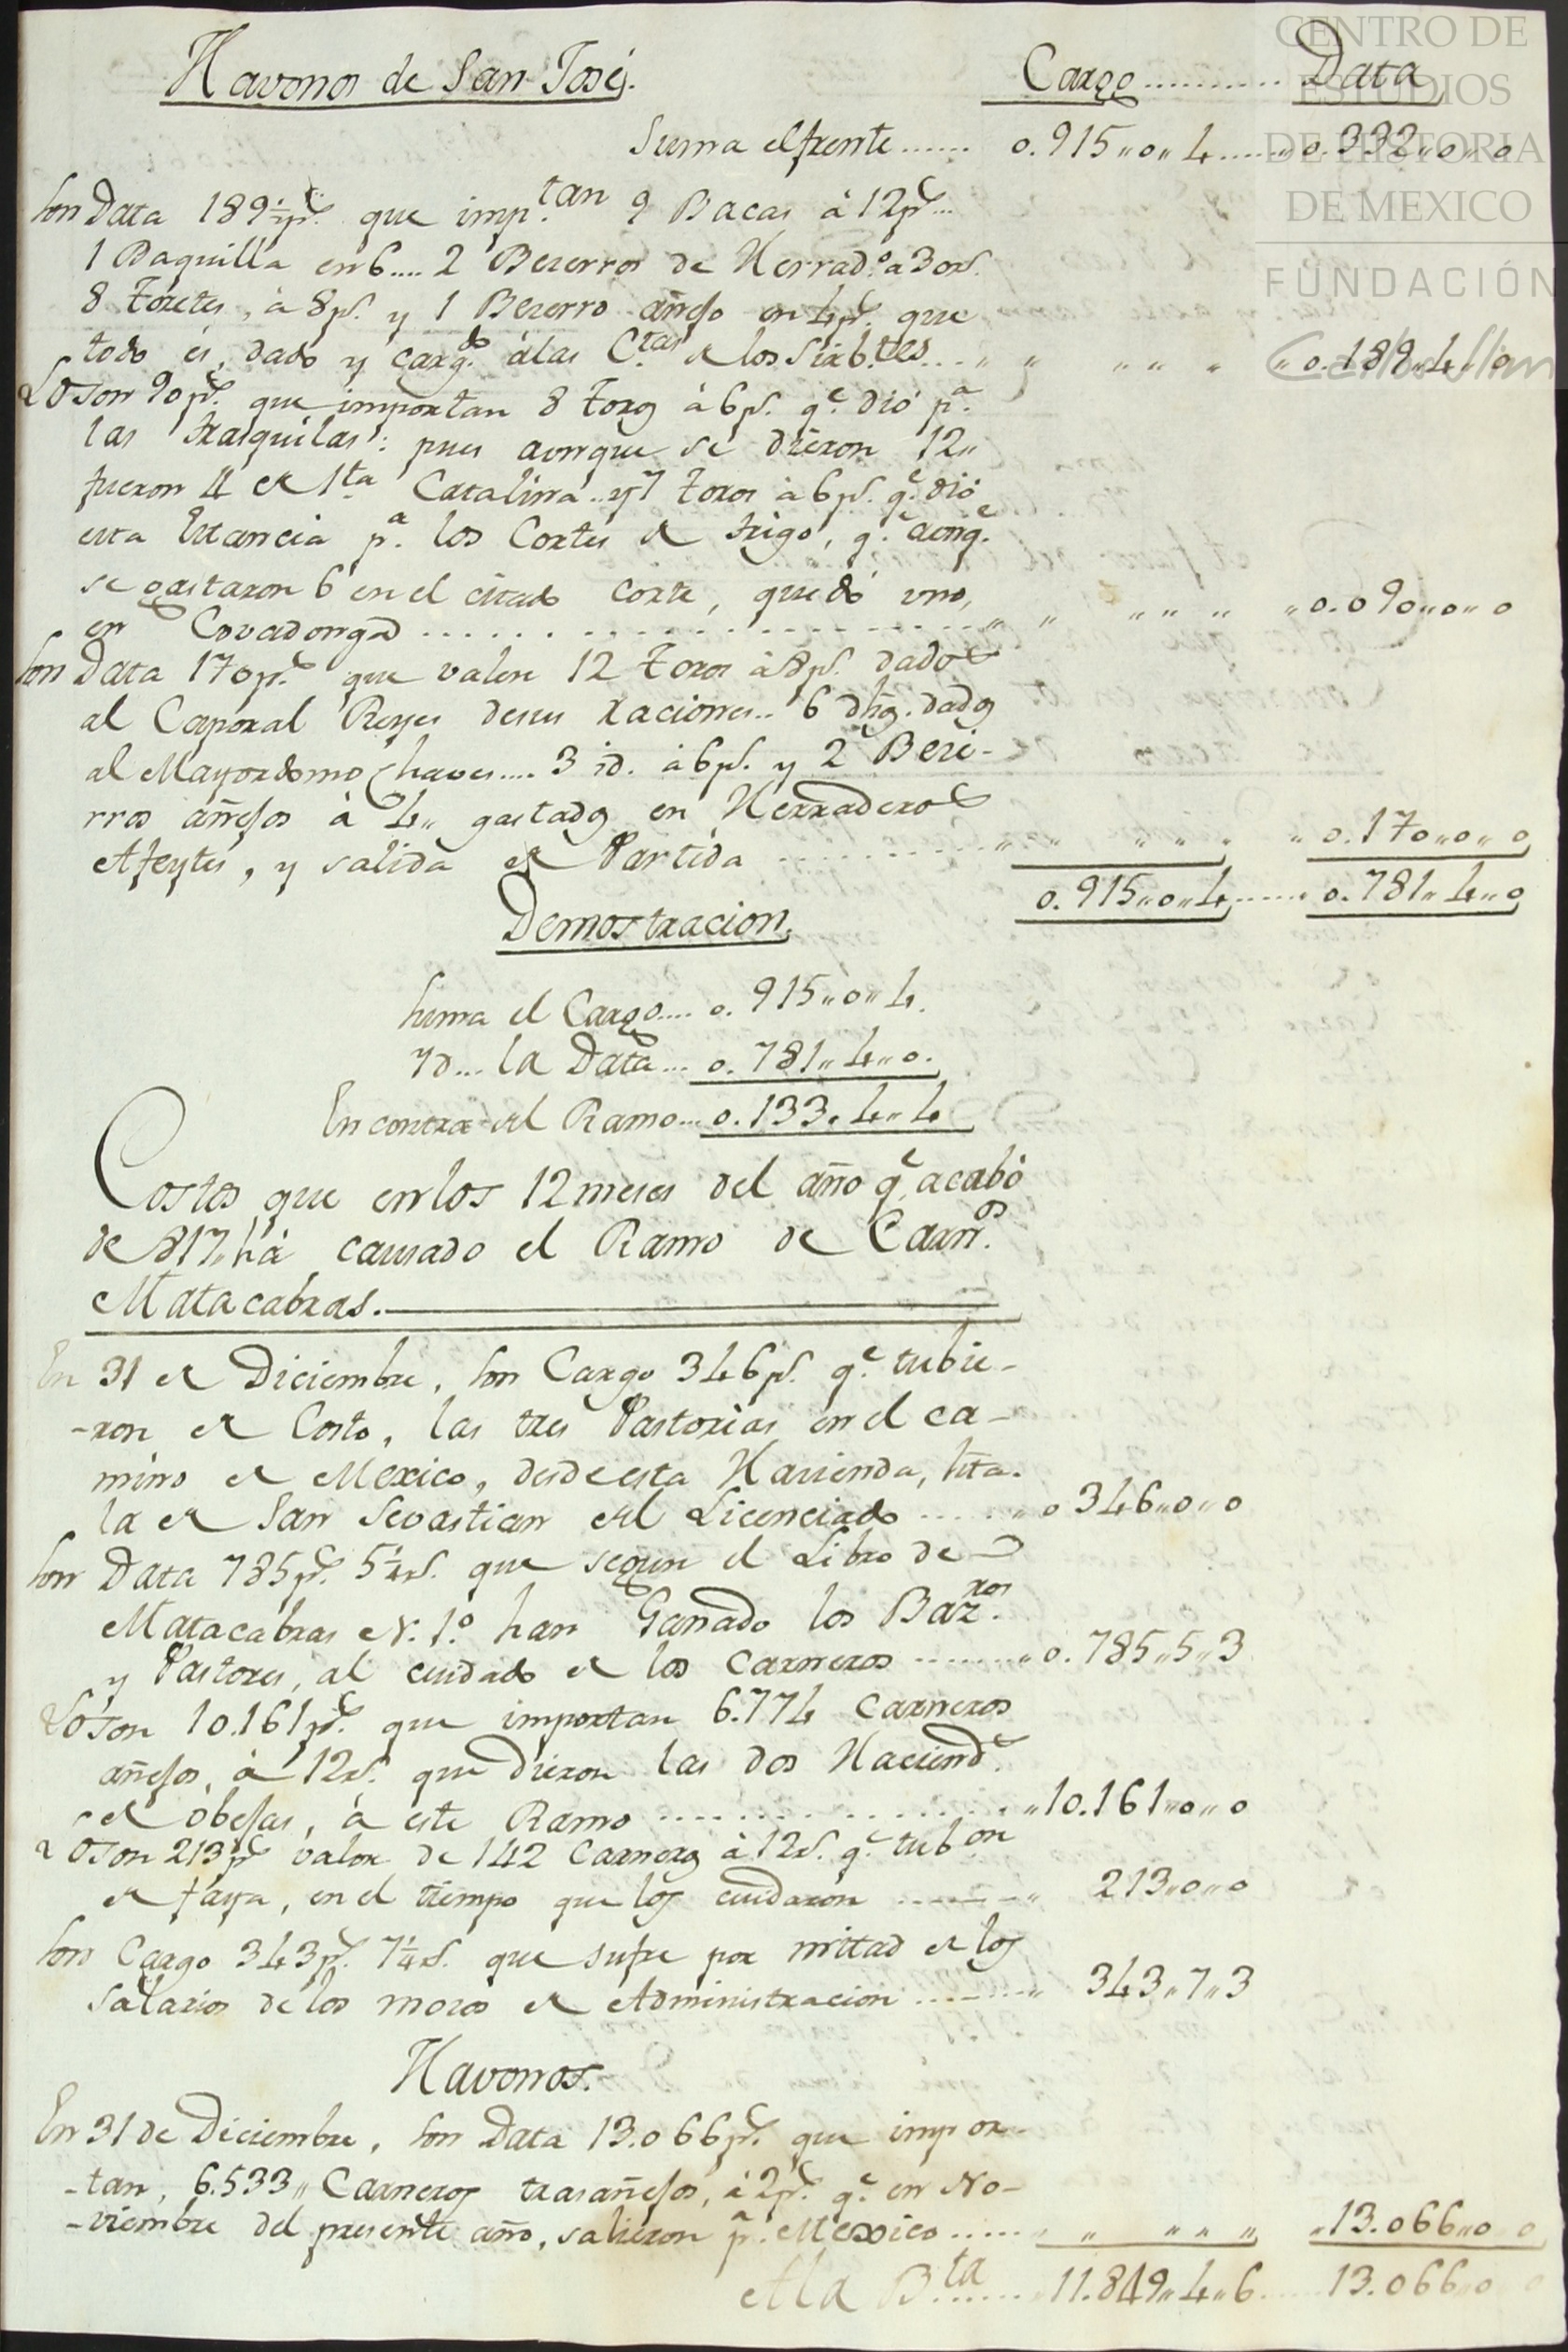 Havonos de San José. Cargo .......... Data
Suma el frente ...... 0.915,,0,,4 ...... 0.332,,0,,0
Son Data 189½ps. que imp.tan 9 Bacas à 12ps...
1 Baquilla en 6.... 2 Bezerros de Herrad.o a 3 ors.
8 Toretes, à 8ps. y 1 Bezerro añejo en 4ps. que
todo és, dado y carg.do álas C.tas de los Sirb.tes ... ,, ,, ,, ,, ,, ,, 0.189,,4,,0
Yo son 90ps. que importan 8 Toros à 6ps. q.e dió p.a
las trasquilas: pues aunque se dieron 12,,
fueron 4 de S.ta Catalina.. y 7 Toros à 6ps. q.e dió
esta Estancia p.a los Cortes de trigo, q.e aunq.e
se gastaron 6 en el citado Corte, quedó uno,
en Covadonga .......................... ,, ,, ,, ,, ,, ,, 0.090,,0,,0
Son Data 170ps. que valen 12 Toros à 8ps. dados
al Caporal Reyes desus raciones.. 6 dhos. dados
al Mayordomo Chaves.... 3 id. à 6ps. y 2 Beze-
rros añejos à 4,, gastados en Herraderos
Afeytes, y salida de Partida .......... ,, ,, ,, ,, ,, ,, 0.170,,0,,0
0.915,,0,,4 ...... 0.781,,4,,0
Demostracion.
Suma el Cargo.... 0.915,,0,,4.
Yd... la Data... 0.781,,4,,0.
En contra del Ramo... 0.133,,4,,4
Costos que en los 12 meses del año q.e acabó
de 817,, há causado el Ramo de Carn.os
Matacabras.
En 31 de Diciembre, son Cargo 346ps. q.e tubie-
-ron de Costo, las tres Pastorias en el ca-
mino de Mexico, desde esta Hazienda, hta.
la de San Sevastian del Licenciado ..... ,, 0 346,,0,,0
Son Data 785ps. 5¼rs. que segun el Libro de
Matacabras N. 1.o han Ganado los Baz.ros
y Pastores, al cuidado de los Carneros ........ ,, 0.785,,5,,3
Yo son 10.161ps. que importan 6.774 Carneros
añejos, à 12rs. que dieron las dos Haciend.s
de óbejas, à este Ramo ................ ,, 10.161,,0,,0
Yo son 213ps. valor de 142 Carneros à 12rs. q.e tub.on
de falla, en el tiempo que los cuidaron ........ ,, 213,,0,,0
Son Cargo 343ps. 7¼rs. que sufre por mittad de los
salarios de los mozos de Administracion ........ ,, 343,,7,,3
Havonos.
En 31 de Diciembre, son Data 13.066ps. que impor-
-tan, 6.533,, Carneros trasañejos, à 2ps. q.e en No-
-viembre del presente año, salieron p.a Mexico ..... ,, ,, ,, ,, ,, ,, 13.066,,0 0
A la B.ta ...... 11.849,,4,,6 .... 13.066,,0 0
CENTRO DE
ESTUDIOS
DE HISTORIA
DE MEXICO
FUNDACIÓN
Carlos Slim